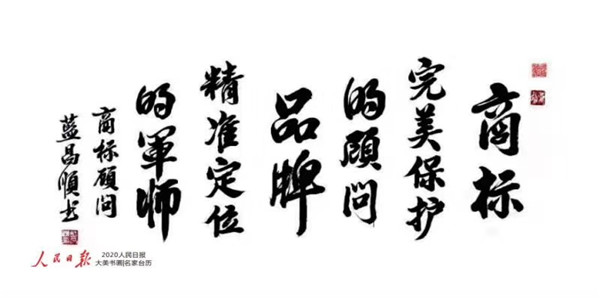 商标
完美保护
的顾问
品牌
精准定位
的軍师
商标顾问
蓝昌順书
人民日报
2020人民日报
大美书画|名家台历